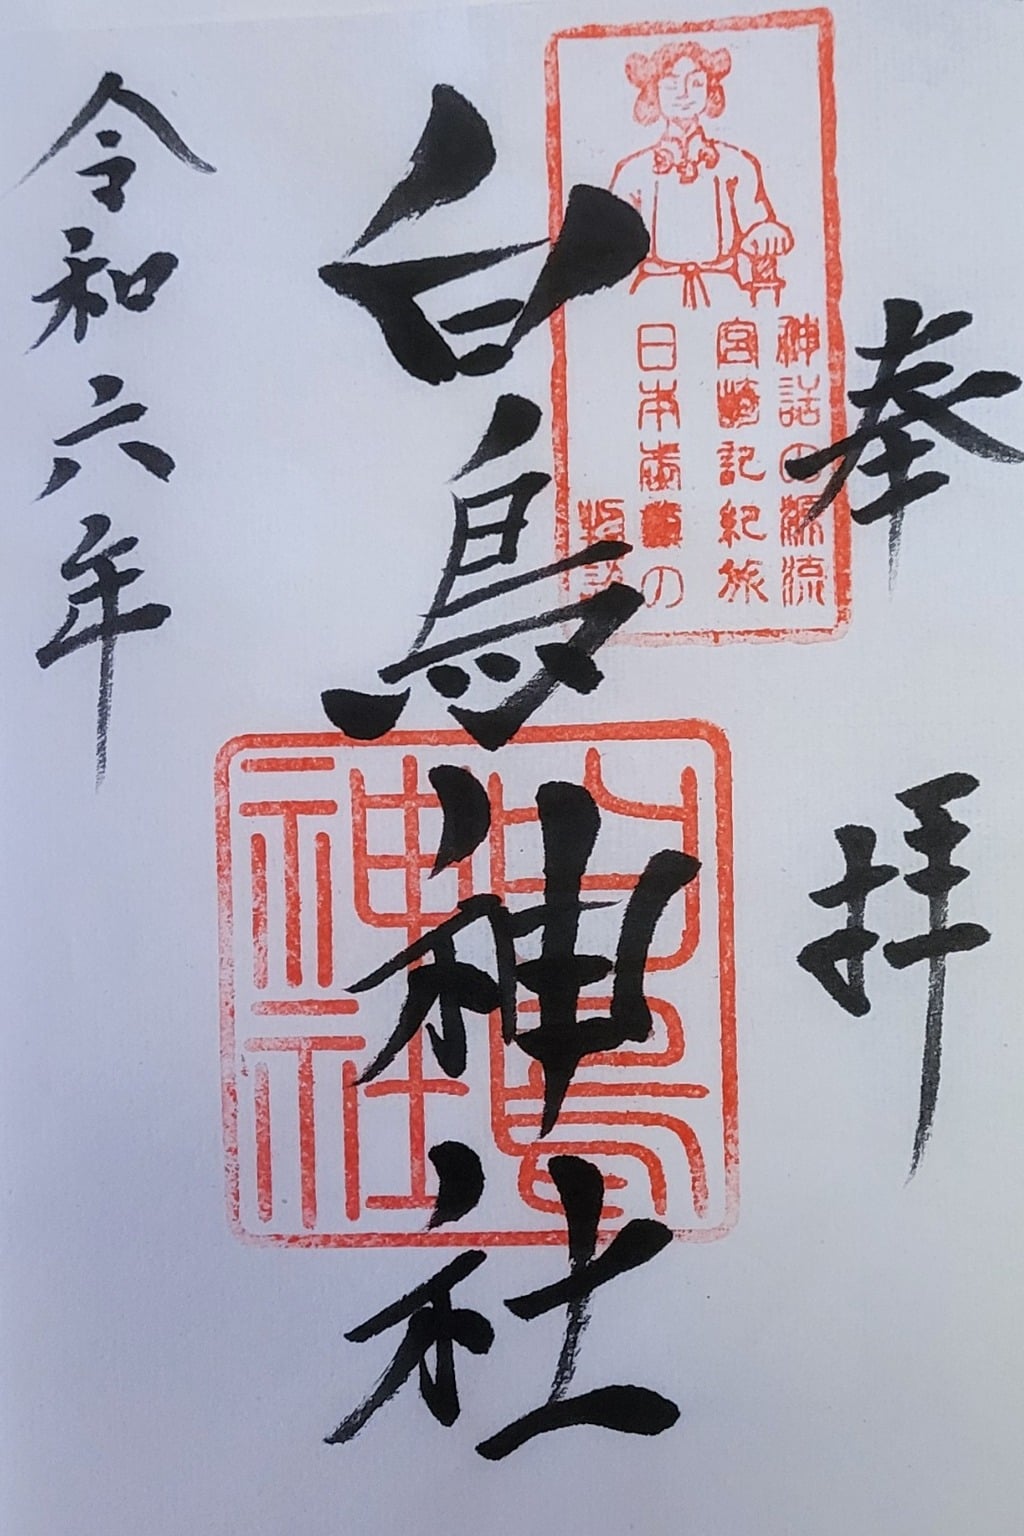 奉拝
神話の源流
宮崎記紀旅
日本武尊の
物語
白鳥神社
白鳥
神社
令和六年